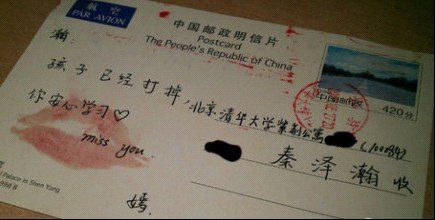 航空
PAR AVION
中国邮政明信片
Postcard
The People's Republic of China
中国邮政
420分
瀚:
孩子已经打掉,
你安心学习♡
miss you
嫣.
北京清华大学紫荆公寓
(100084)
秦泽瀚 收
Palace in Shen Yang